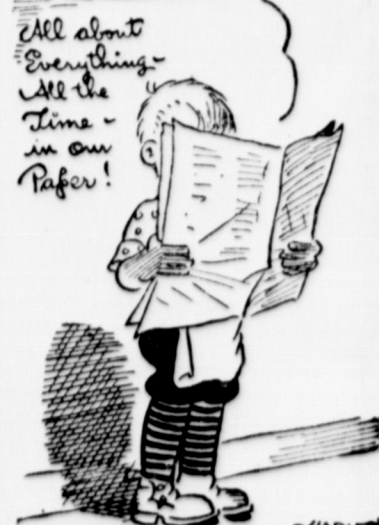 All about
Everything-
All the
Time -
in our
Paper!